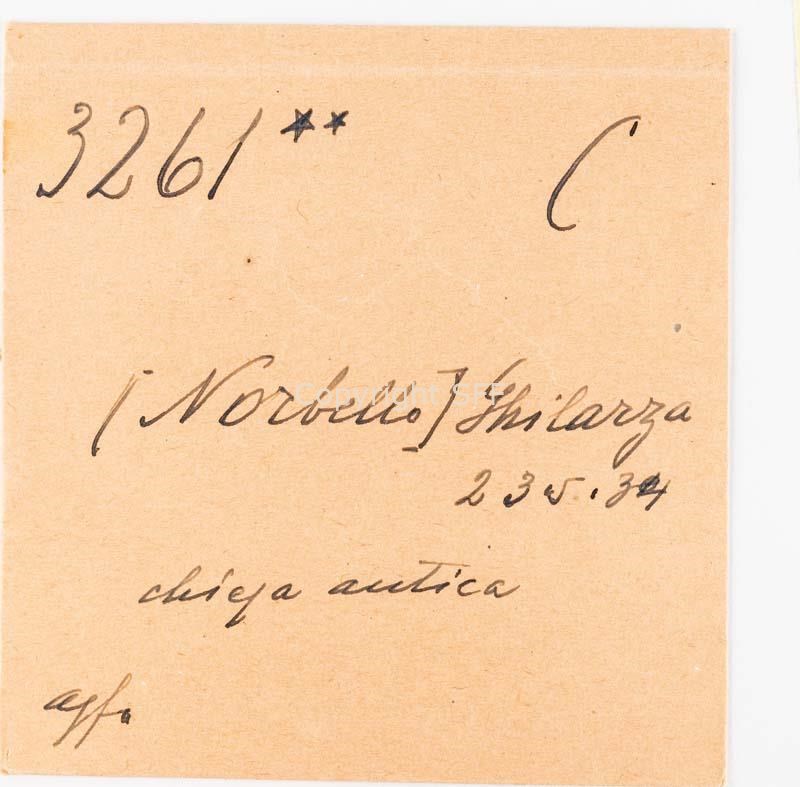 3261** C
[Norbello] Ghilarza
23 5 . 34
chiesa antica
agfa
Copyright SFF